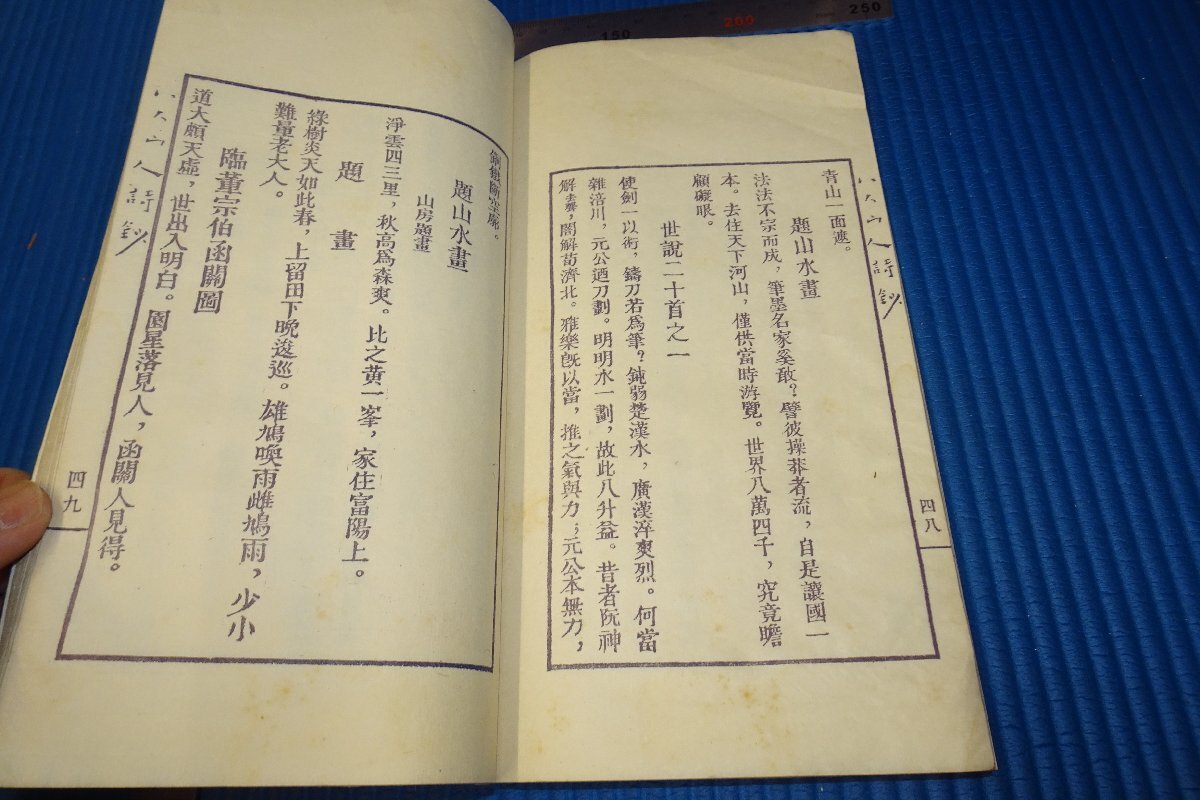 150
200
250
八大山人詩鈔
四八
青山一面遮。
題山水畫
法法不宗而成，筆墨名家奚敢？譬彼操莽者流，自是讓國一
本。去住天下河山，僅供當時游覽。世界八萬四千，究竟瞻
顧礙眼。
世說二十首之一
使劍一以術，鑄刀若爲筆？鈍弱楚漢水，廣漢淬爽烈。何當
雜涪川，元公迺刀劃。明明水一劃，故此八升益。昔者阮神
解，闇解荀濟北。雅樂旣以當，推之氣與力；元公本無力，
題山水畫
山房題畫
淨雲四三里，秋高爲森爽。比之黄一峯，家住富陽上。
題畫
綠樹炎天如此春，上留田下晚逡巡。雄鳩喚雨雌鳩雨，少小
難量老大人。
臨董宗伯函關圖
道大頗天虛，世出入明白。園星落見人，函關人見得。
八大山人詩鈔
四九